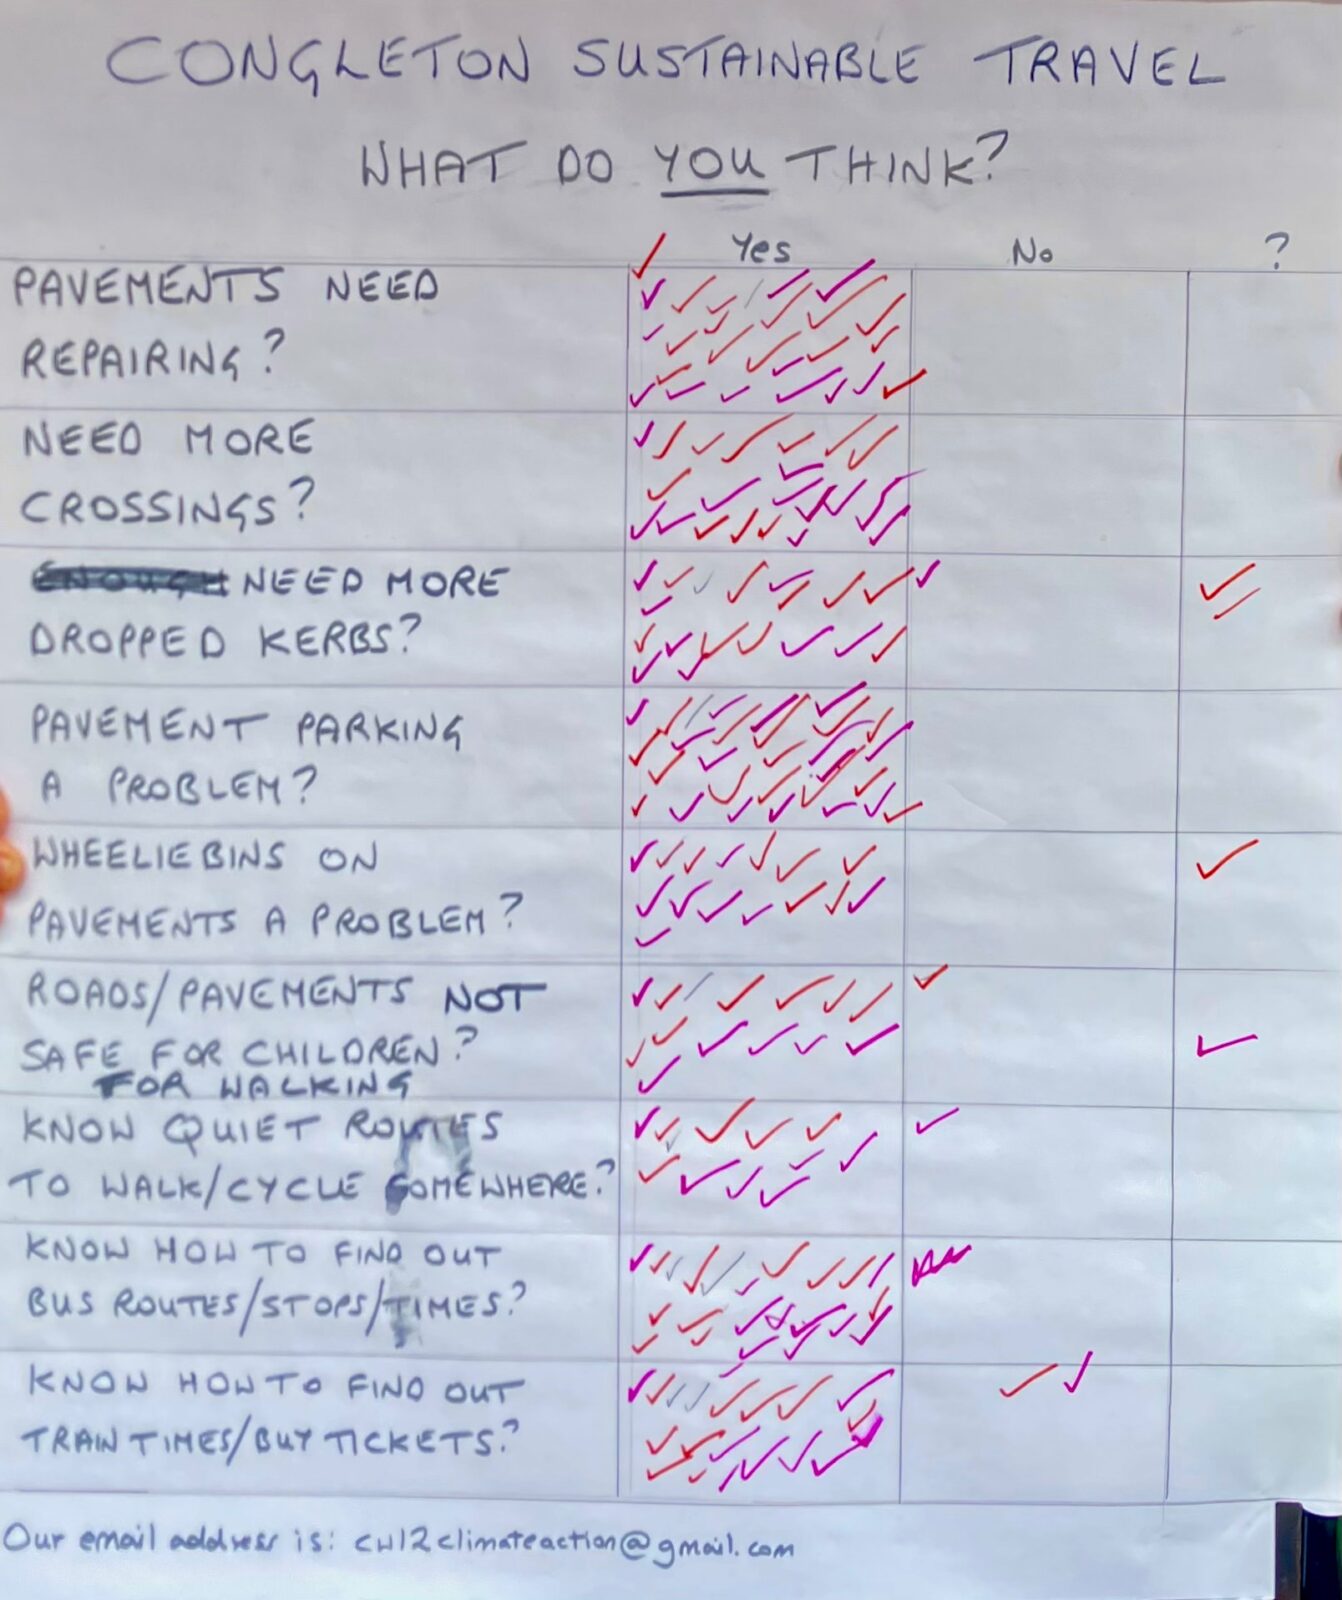 CONGLETON SUSTAINABLE TRAVEL
WHAT DO YOU THINK?
Yes No ?
PAVEMENTS NEED
REPAIRING?
NEED MORE
CROSSINGS?
NEED MORE
DROPPED KERBS?
PAVEMENT PARKING
A PROBLEM?
WHEELIEBINS ON
PAVEMENTS A PROBLEM?
ROADS/PAVEMENTS NOT
SAFE FOR CHILDREN?
FOR WALKING
KNOW QUIET ROUTES
TO WALK/CYCLE SOMEWHERE?
KNOW HOW TO FIND OUT
BUS ROUTES/STOPS/TIMES?
KNOW HOW TO FIND OUT
TRAIN TIMES/BUY TICKETS?
Our email address is: cw12climateaction@gmail.com